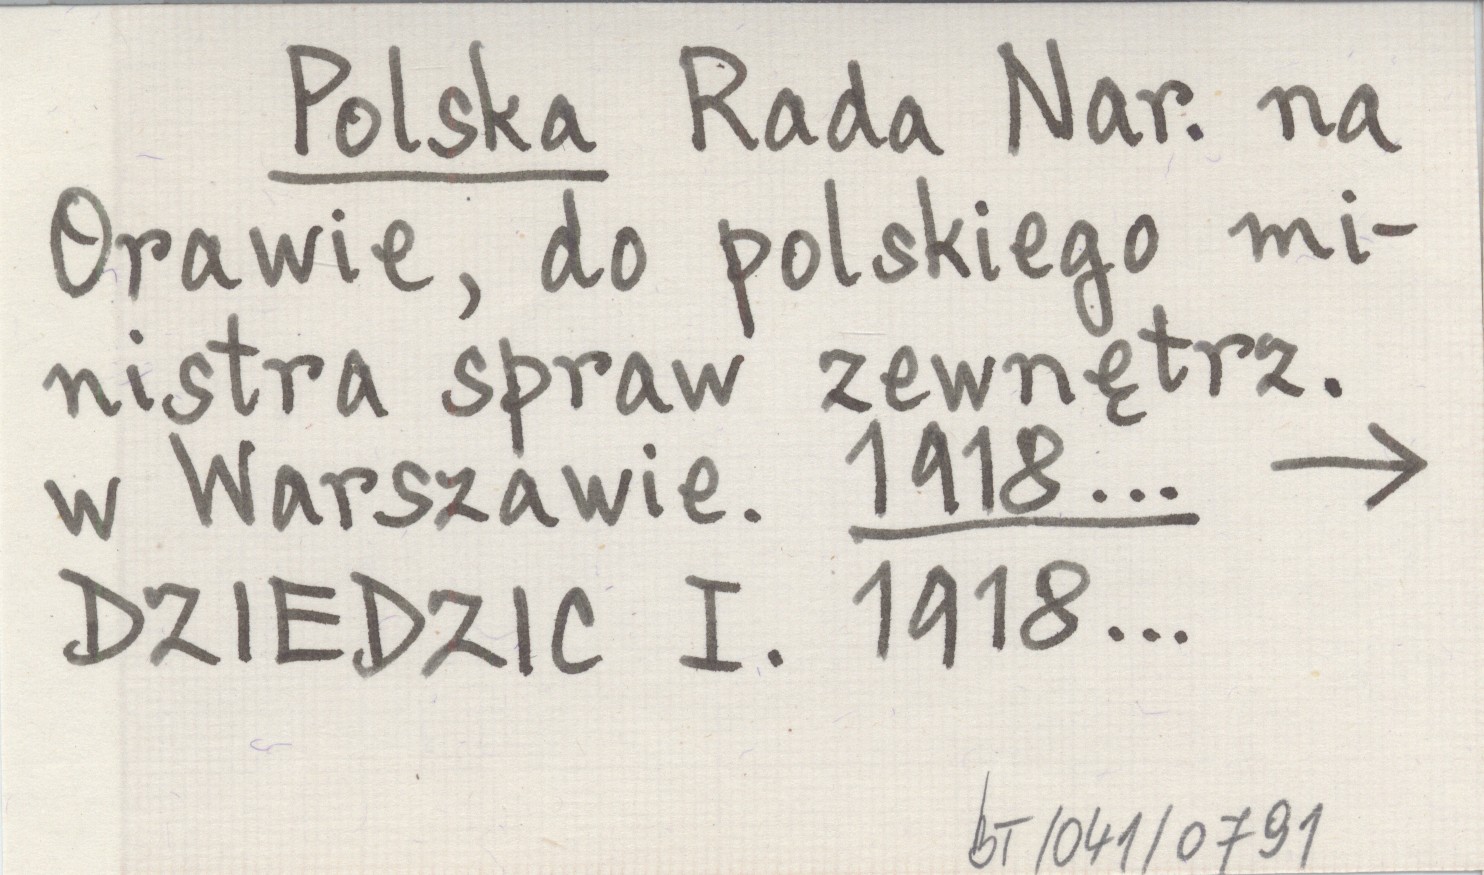 Polska Rada Nar. na
Orawie, do polskiego mi-
nistra spraw zewnętrz.
w Warszawie. 1918... →
DZIEDZIC I. 1918...
bT/041/0791